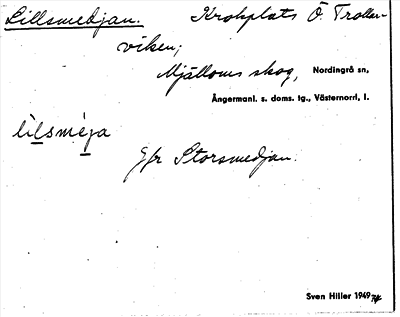 Lillsmedjan. Krokplats Ö. Trollar-
viken;
Mjälloms skog, Nordingrå sn,
Ångermanl. s. doms. tg., Västernorrl, l.
lilsmeja
Jfr Storsmedjan.
Sven Hiller 1949